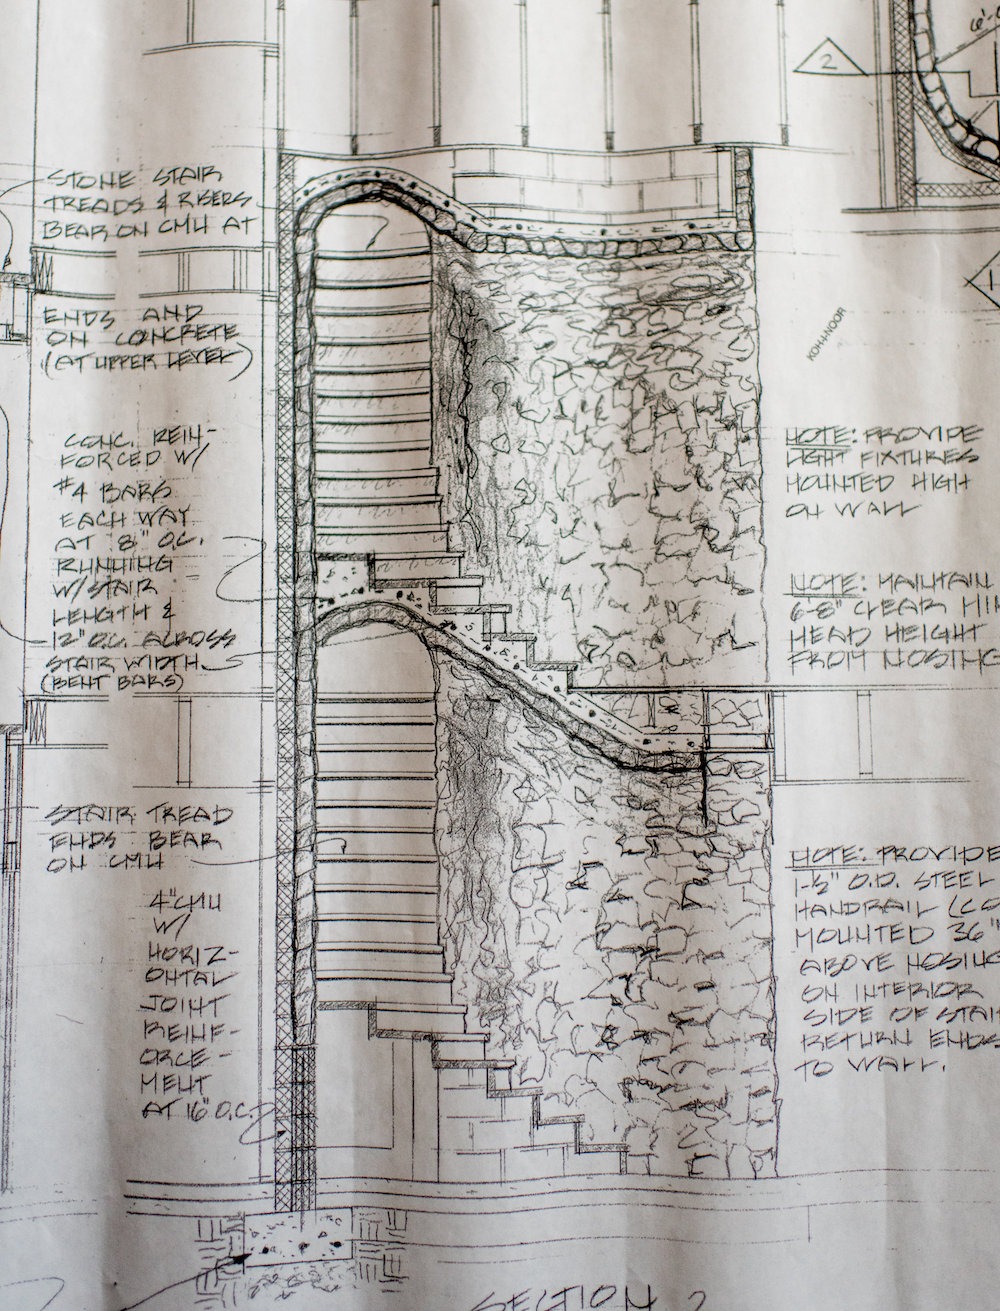 6'-
2
STONE STAIR
TREADS & RISERS
BEAR ON CMU AT
ENDS AND
ON CONCRETE
(AT UPPER LEVEL)
CONC. REIN-
FORCED W/
#4 BARS
EACH WAY
AT 8" O.C.
RUNNING
W/ STAIR
LENGTH &
12" O.C. ACROSS
STAIR WIDTH
(BENT BARS)
STAIR TREAD
ENDS BEAR
ON CMU
4" CMU
W/
HORIZ-
ONTAL
JOINT
REINF-
ORCE-
MENT
AT 16" O.C.
1
KOH-I-NOOR
NOTE: PROVIDE
LIGHT FIXTURES
MOUNTED HIGH
ON WALL
NOTE: MAINTAIN
6-8" CLEAR MIN
HEAD HEIGHT
FROM NOSING
NOTE: PROVIDE
1-½" O.D. STEEL
HANDRAIL (CO
MOUNTED 36"
ABOVE NOSING
ON INTERIOR
SIDE OF STAI
RETURN ENDS
TO WALL.
SECTION 2